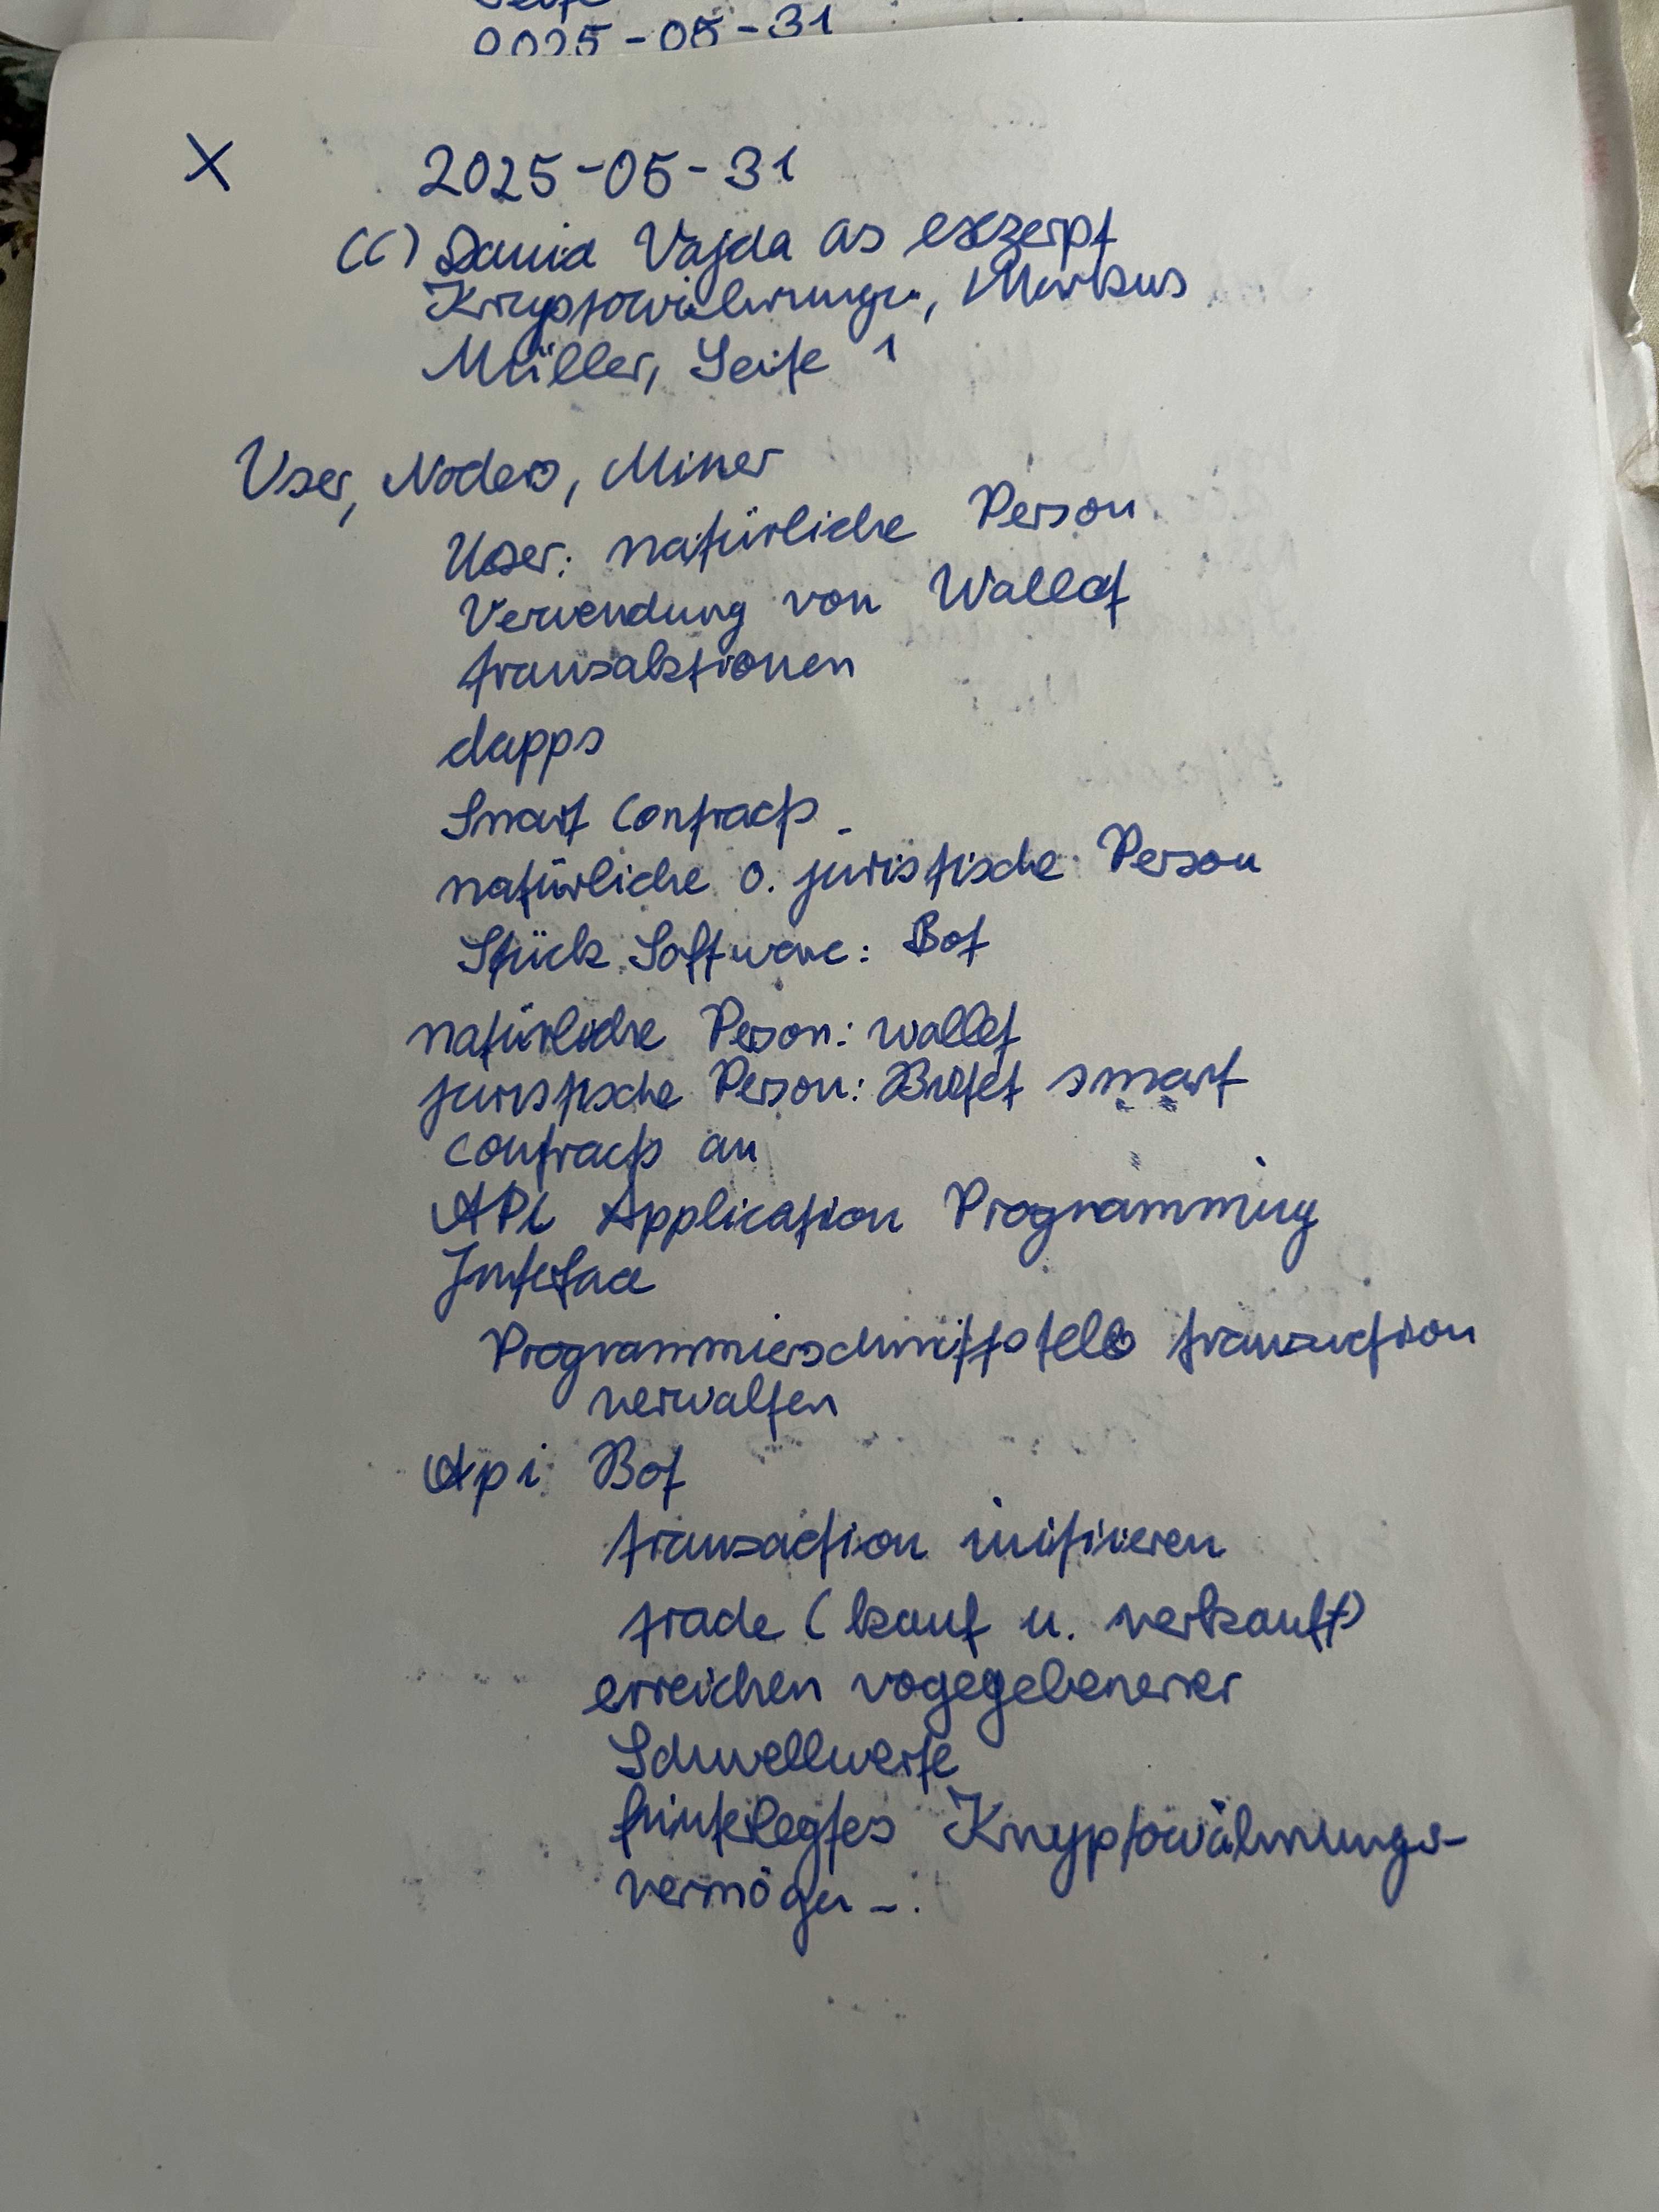 2025-05-31
X 2025-05-31
(C) David Vajda as exzerpt
Kryptowährungen, Markus
Müller, Seite 1
User, Nodes, Miner
User: natürliche Person
Verwendung von Wallet
transaktionen
dapps
Smart Contracts
natürliche o. juristische Person
Stück Software: Bot
natürliche Person: wallet
juristische Person: Bietet smart
contracts an
API Application Programming
Interface
Programmierschnittstelle transaction
verwalten
Api Bot
transaction initiieren
trade (kauf u. verkauf)
erreichen vogegebenerer
Schwellwerte
hinterlegtes Kryptowährungs-
vermögen -.